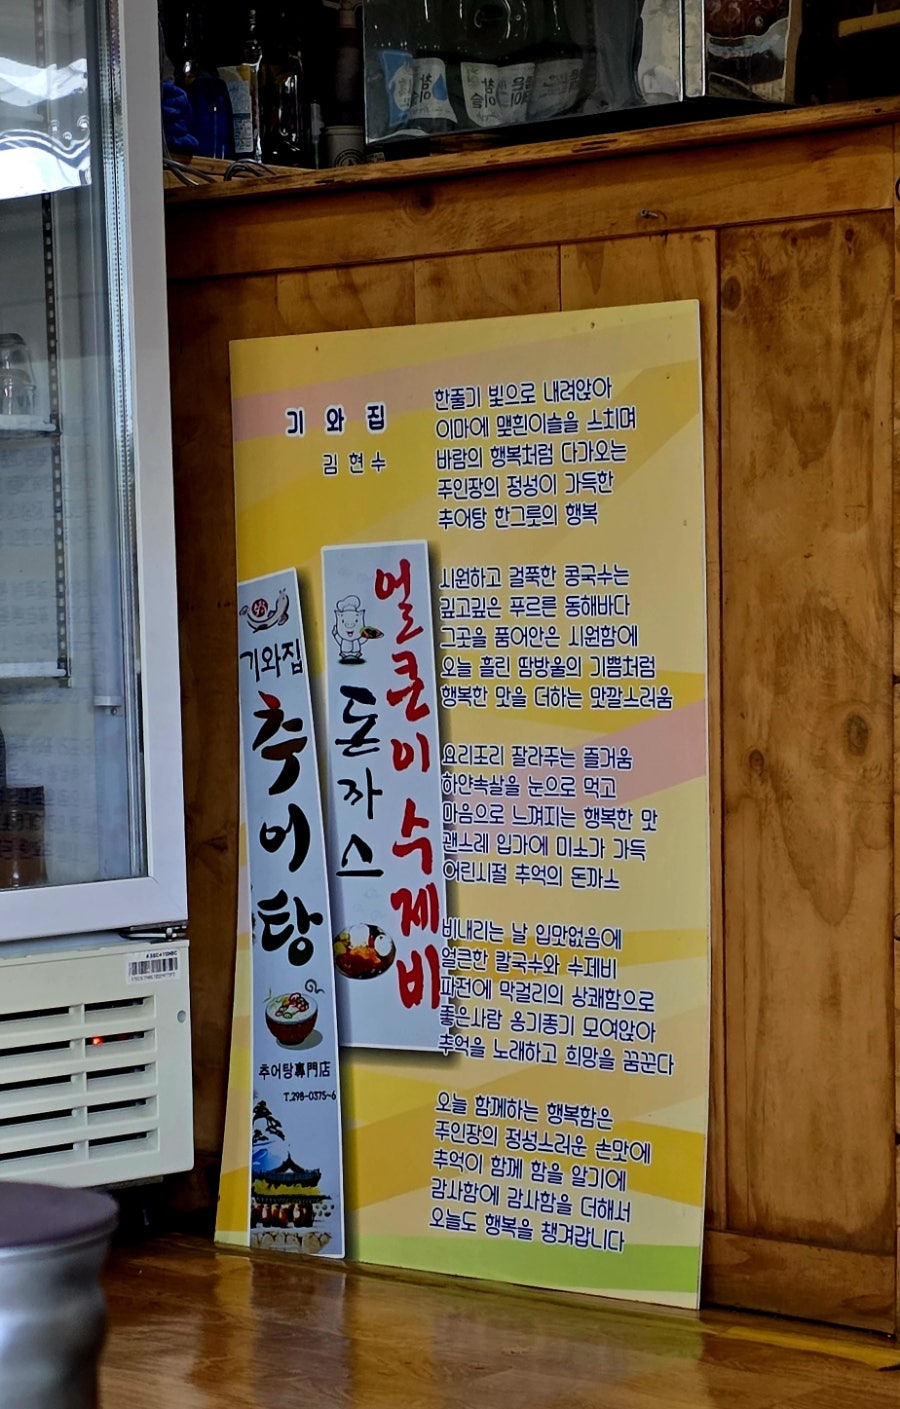 참이슬
기와집
김현수
한줄기 빛으로 내려앉아
이마에 맺힌이슬을 스치며
바람의 행복처럼 다가오는
주인장의 정성이 가득한
추어탕 한그릇의 행복
시원하고 걸쭉한 콩국수는
깊고깊은 푸르른 동해바다
그곳을 품어안은 시원함에
오늘 흘린 땀방울의 기쁨처럼
행복한 맛을 더하는 맛깔스러움
요리조리 잘라주는 즐거움
하얀속살을 눈으로 먹고
마음으로 느껴지는 행복한 맛
괜스레 입가에 미소가 가득
어린시절 추억의 돈까스
비내리는 날 입맛없음에
얼큰한 칼국수와 수제비
파전에 막걸리의 상쾌함으로
좋은사람 옹기종기 모여앉아
추억을 노래하고 희망을 꿈꾼다
오늘 함께하는 행복함은
주인장의 정성스러운 손맛에
추억이 함께 함을 알기에
감사함에 감사함을 더해서
오늘도 행복을 챙겨갑니다
기와집
추어탕
추어탕專門店
T.298-0375-6
돈까스
얼큰이수제비